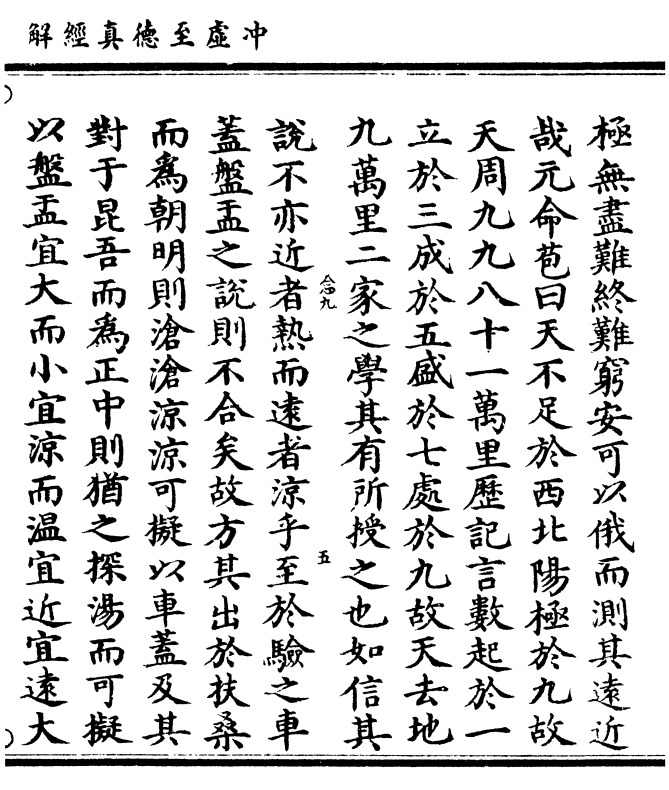 冲虛至德真經解
極無盡難終難窮安可以俄而測其遠近
哉元命苞曰天不足於西北陽極於九故
天周九九八十一萬里歷記言數起於一
立於三成於五盛於七處於九故天去地
九萬里二家之學其有所授之也如信其
說不亦近者熱而遠者涼乎至於驗之車
蓋盤盂之說則不合矣故方其出於扶桑
而爲朝明則滄滄涼涼可擬以車蓋及其
對于昆吾而爲正中則猶之探湯而可擬
以盤盂宜大而小宜涼而温宜近宜遠大
五